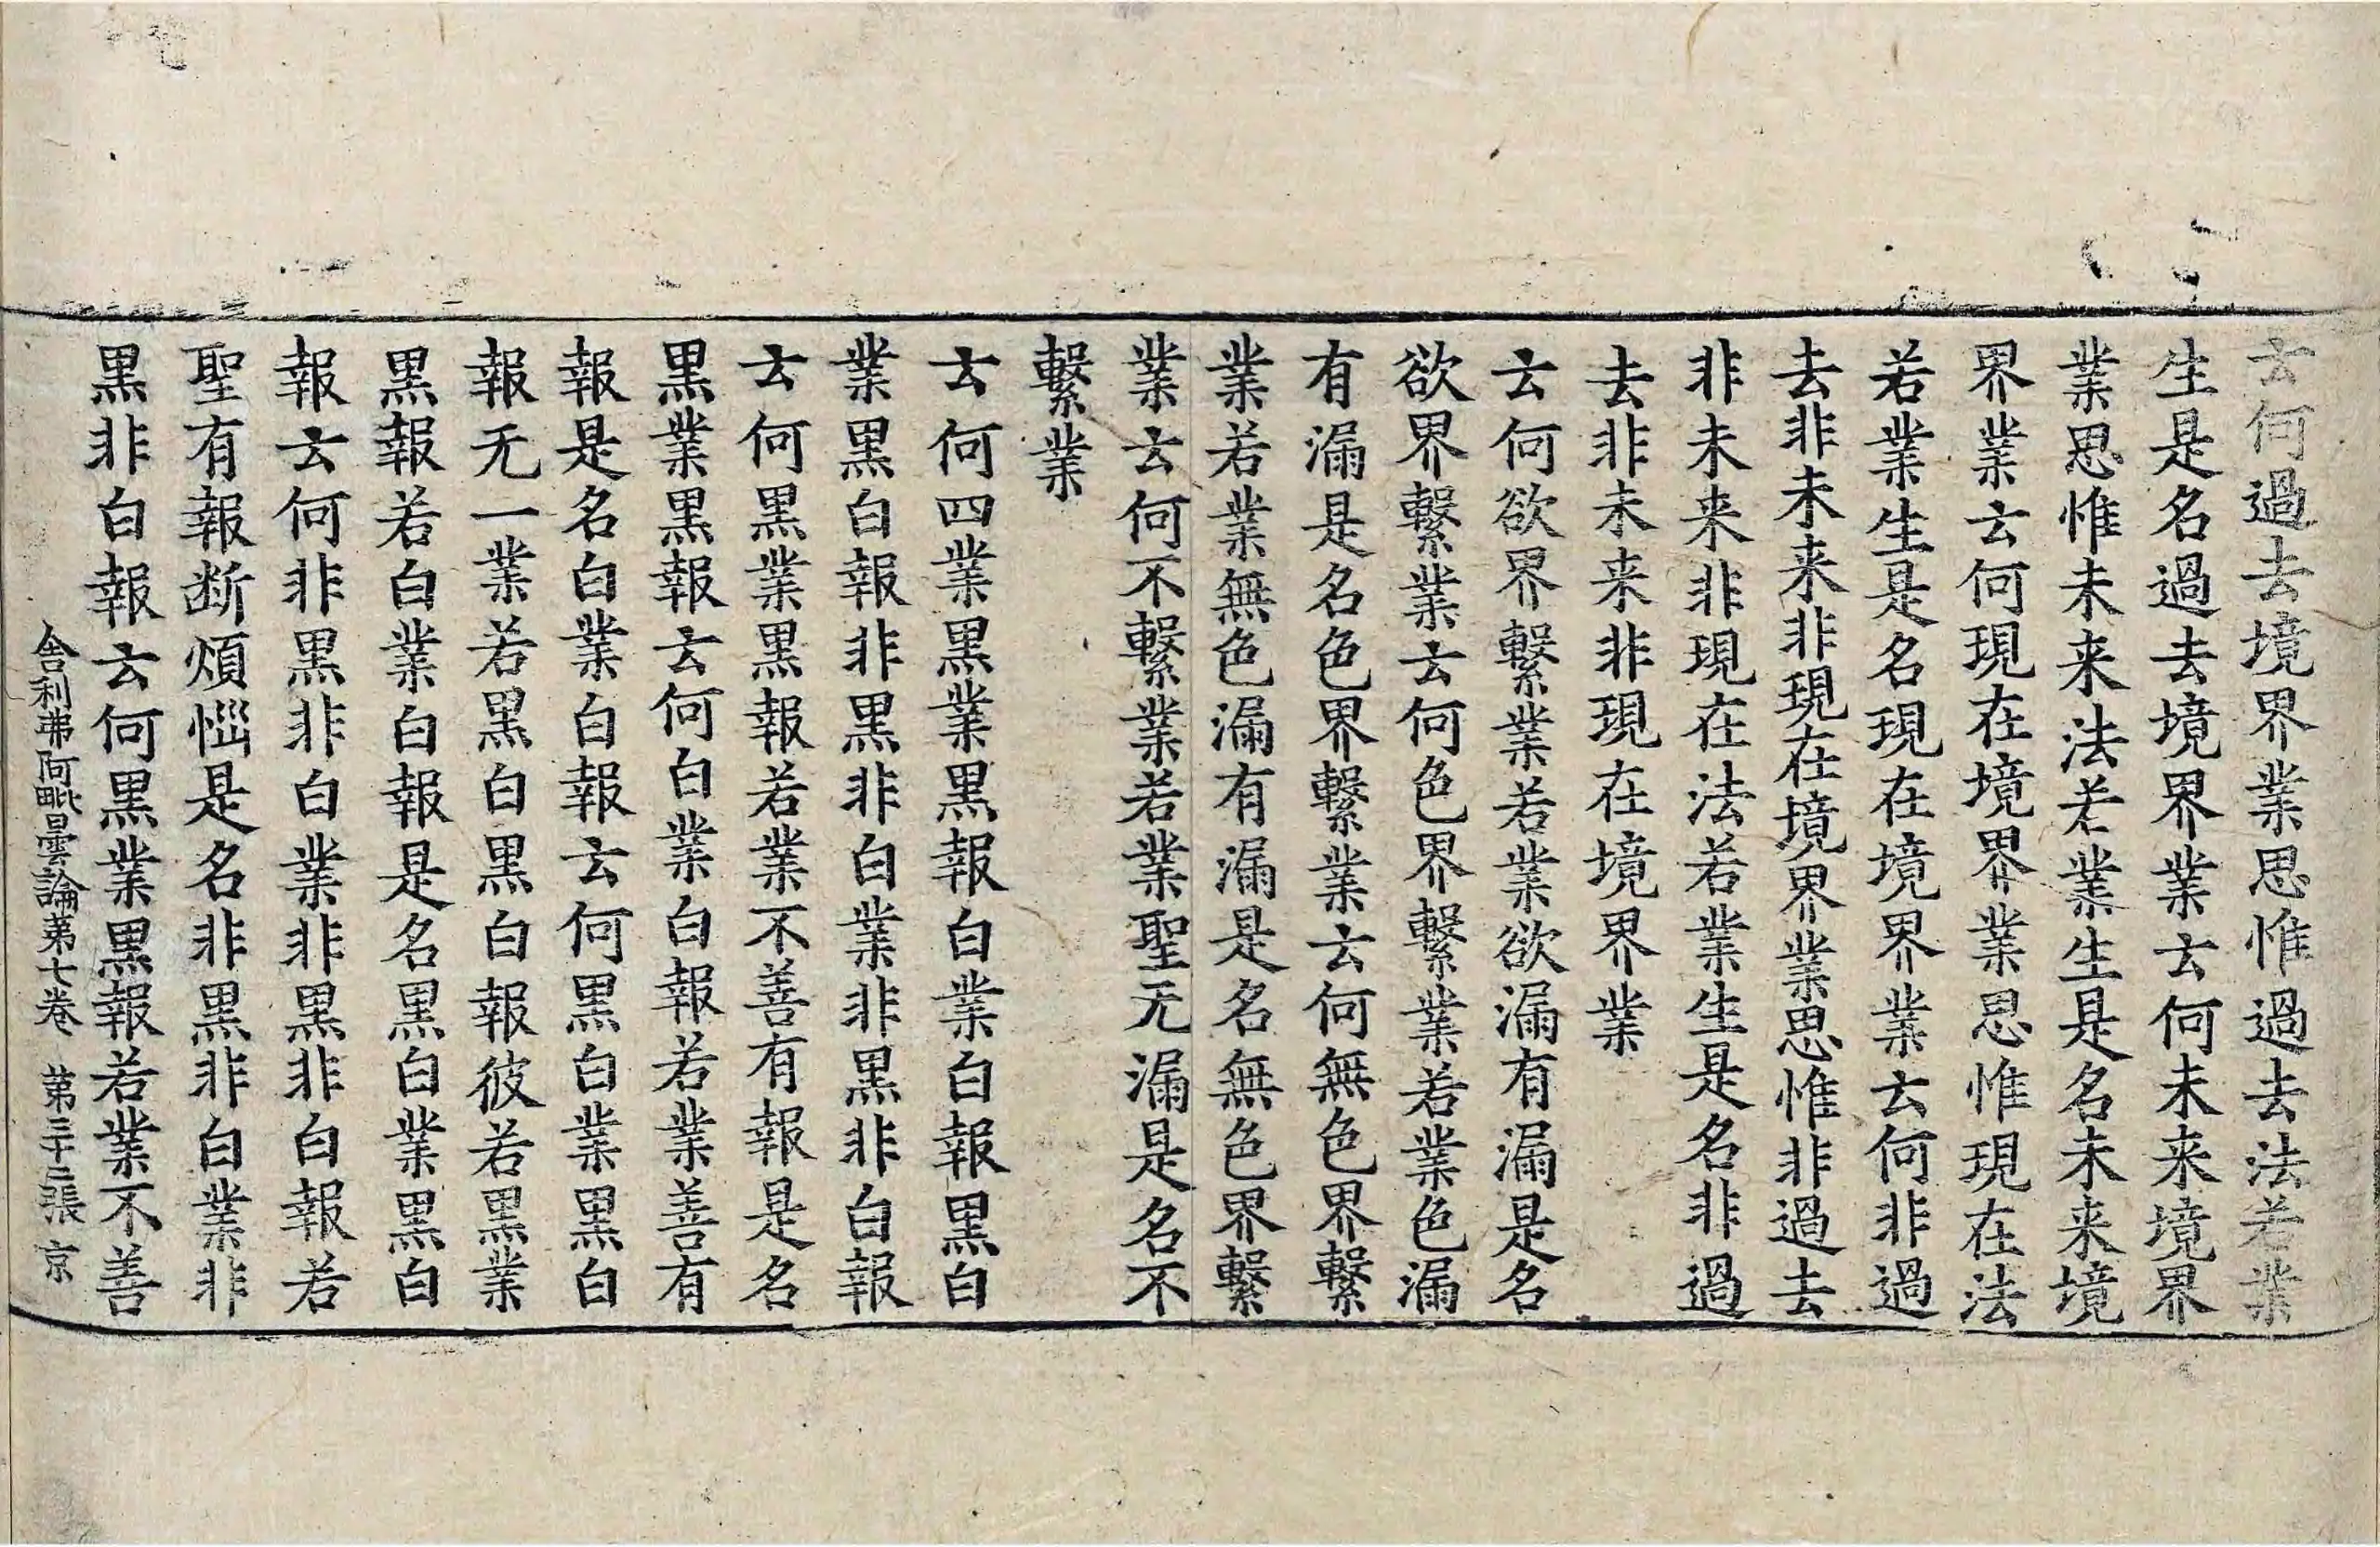 云何過去境界業思惟過去法若業
生是名過去境界業云何未来境界
業思惟未来法若業生是名未来境
界業云何現在境界業思惟現在法
若業生是名現在境界業云何非過
去非未来非現在境界業思惟非過去
非未来非現在法若業生是名非過
去非未来非現在境界業
云何欲界繫業若業欲漏有漏是名
欲界繫業云何色界繫業若業色漏
有漏是名色界繫業云何無色界繫
業若業無色漏有漏是名無色界繫
業云何不繫業若業聖无漏是名不
繫業
云何四業黒業黒報白業白報黒白
業黒白報非黒非白業非黒非白報
云何黒業黒報若業不善有報是名
黒業黒報云何白業白報若業善有
報是名白業白報云何黒白業黒白
報无一業若黒白黒白報彼若黒業
黒報若白業白報是名黒白業黒白
報云何非黒非白業非黒非白報若
聖有報断煩惱是名非黒非白業非
黒非白報云何黒業黒報若業不善
舎利弗阿毗曇論第七卷 第三十二張 京